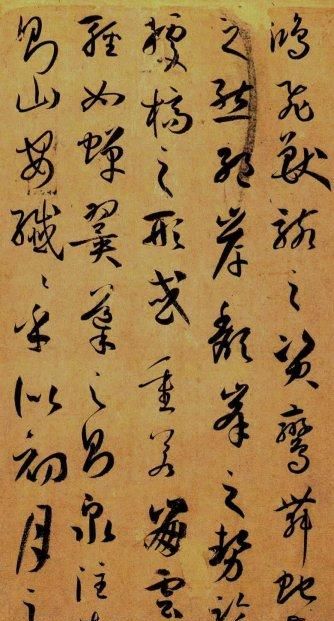 鴻飛獸駭之資鸞舞蛇
之態絕岸頹峯之勢臨
據槁之形或重若崩雲
輕如蟬翼導之則泉注
則山安纖〻乎似初月之